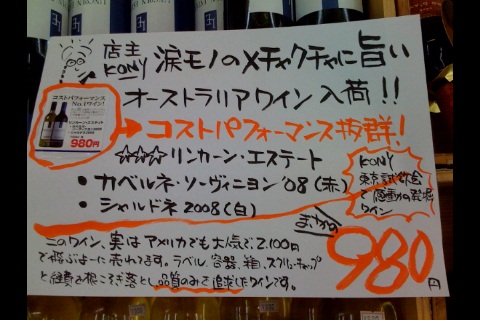 店主
KONY
涙モノのメチャクチャに旨い
オーストラリアワイン入荷!!
コストパフォーマンス
No.1ワイン!
リンカーンエステート
980円
→コストパフォーマンス抜群!
☆☆☆リンカーン・エステート
・カベルネ・ソーヴィニヨン'08(赤)
・シャルドネ2008(白)
KONY
東京試飲会
で感動の発掘
ワイン
まさかの
980円
このワイン、実はアメリカでも大人気で2,100円
で飛ぶよーに売れてます。ラベル、容器、箱、スクリューキャップ
と経費を根こそぎ落とし品質のみを追求したワインです。